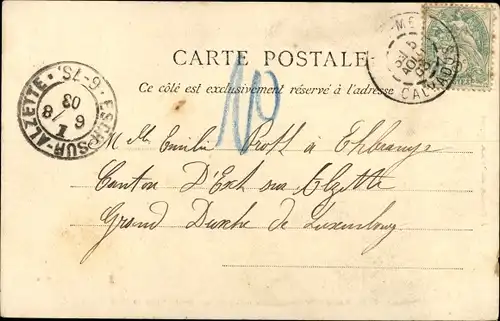 CARTE POSTALE
Ce côté est exclusivement réservé à l'adresse
ESCH-SUR-ALZETTE · 6-7S.
8/8
03
1
9
CALVADOS
Mlle Emilie Proth à Ehlerange
Canton D'Esch sur Alzette
Grand Duché de Luxembourg